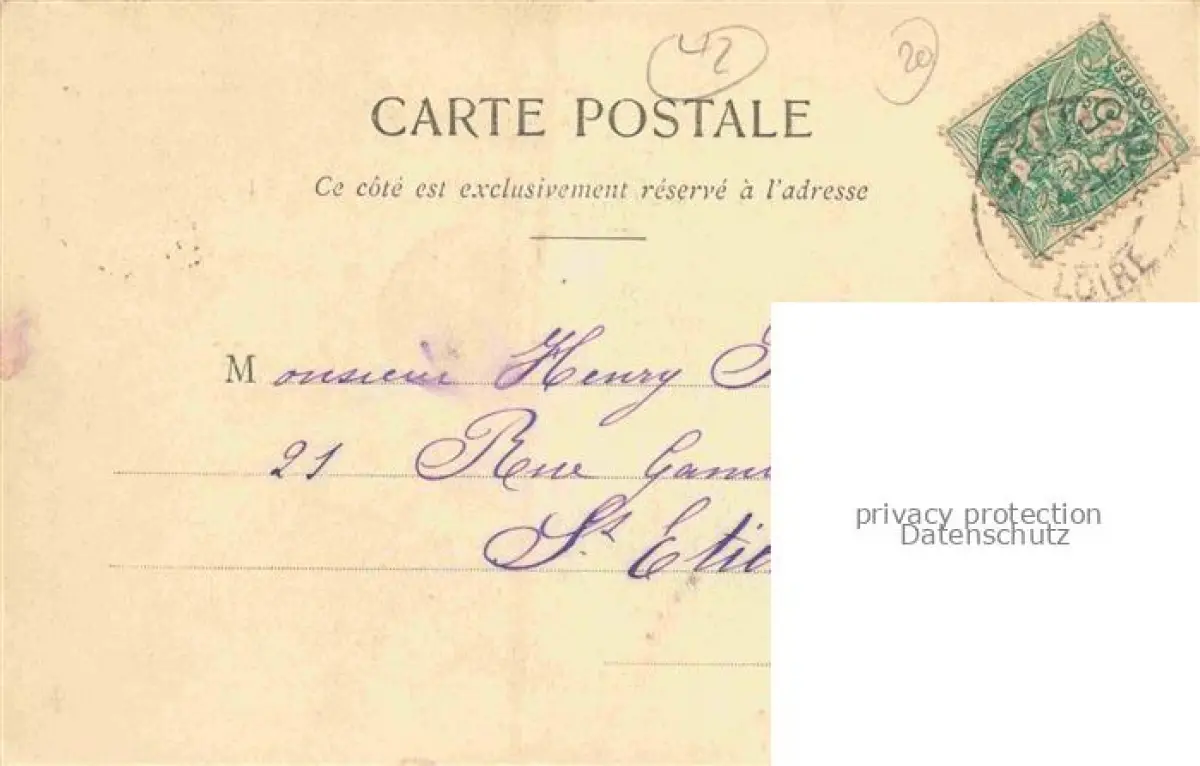 42
20
CARTE POSTALE
Ce côté est exclusivement réservé à l'adresse
POSTES
5
LOIRE
Monsieur Henry
21 Rue
St
privacy protection
Datenschutz